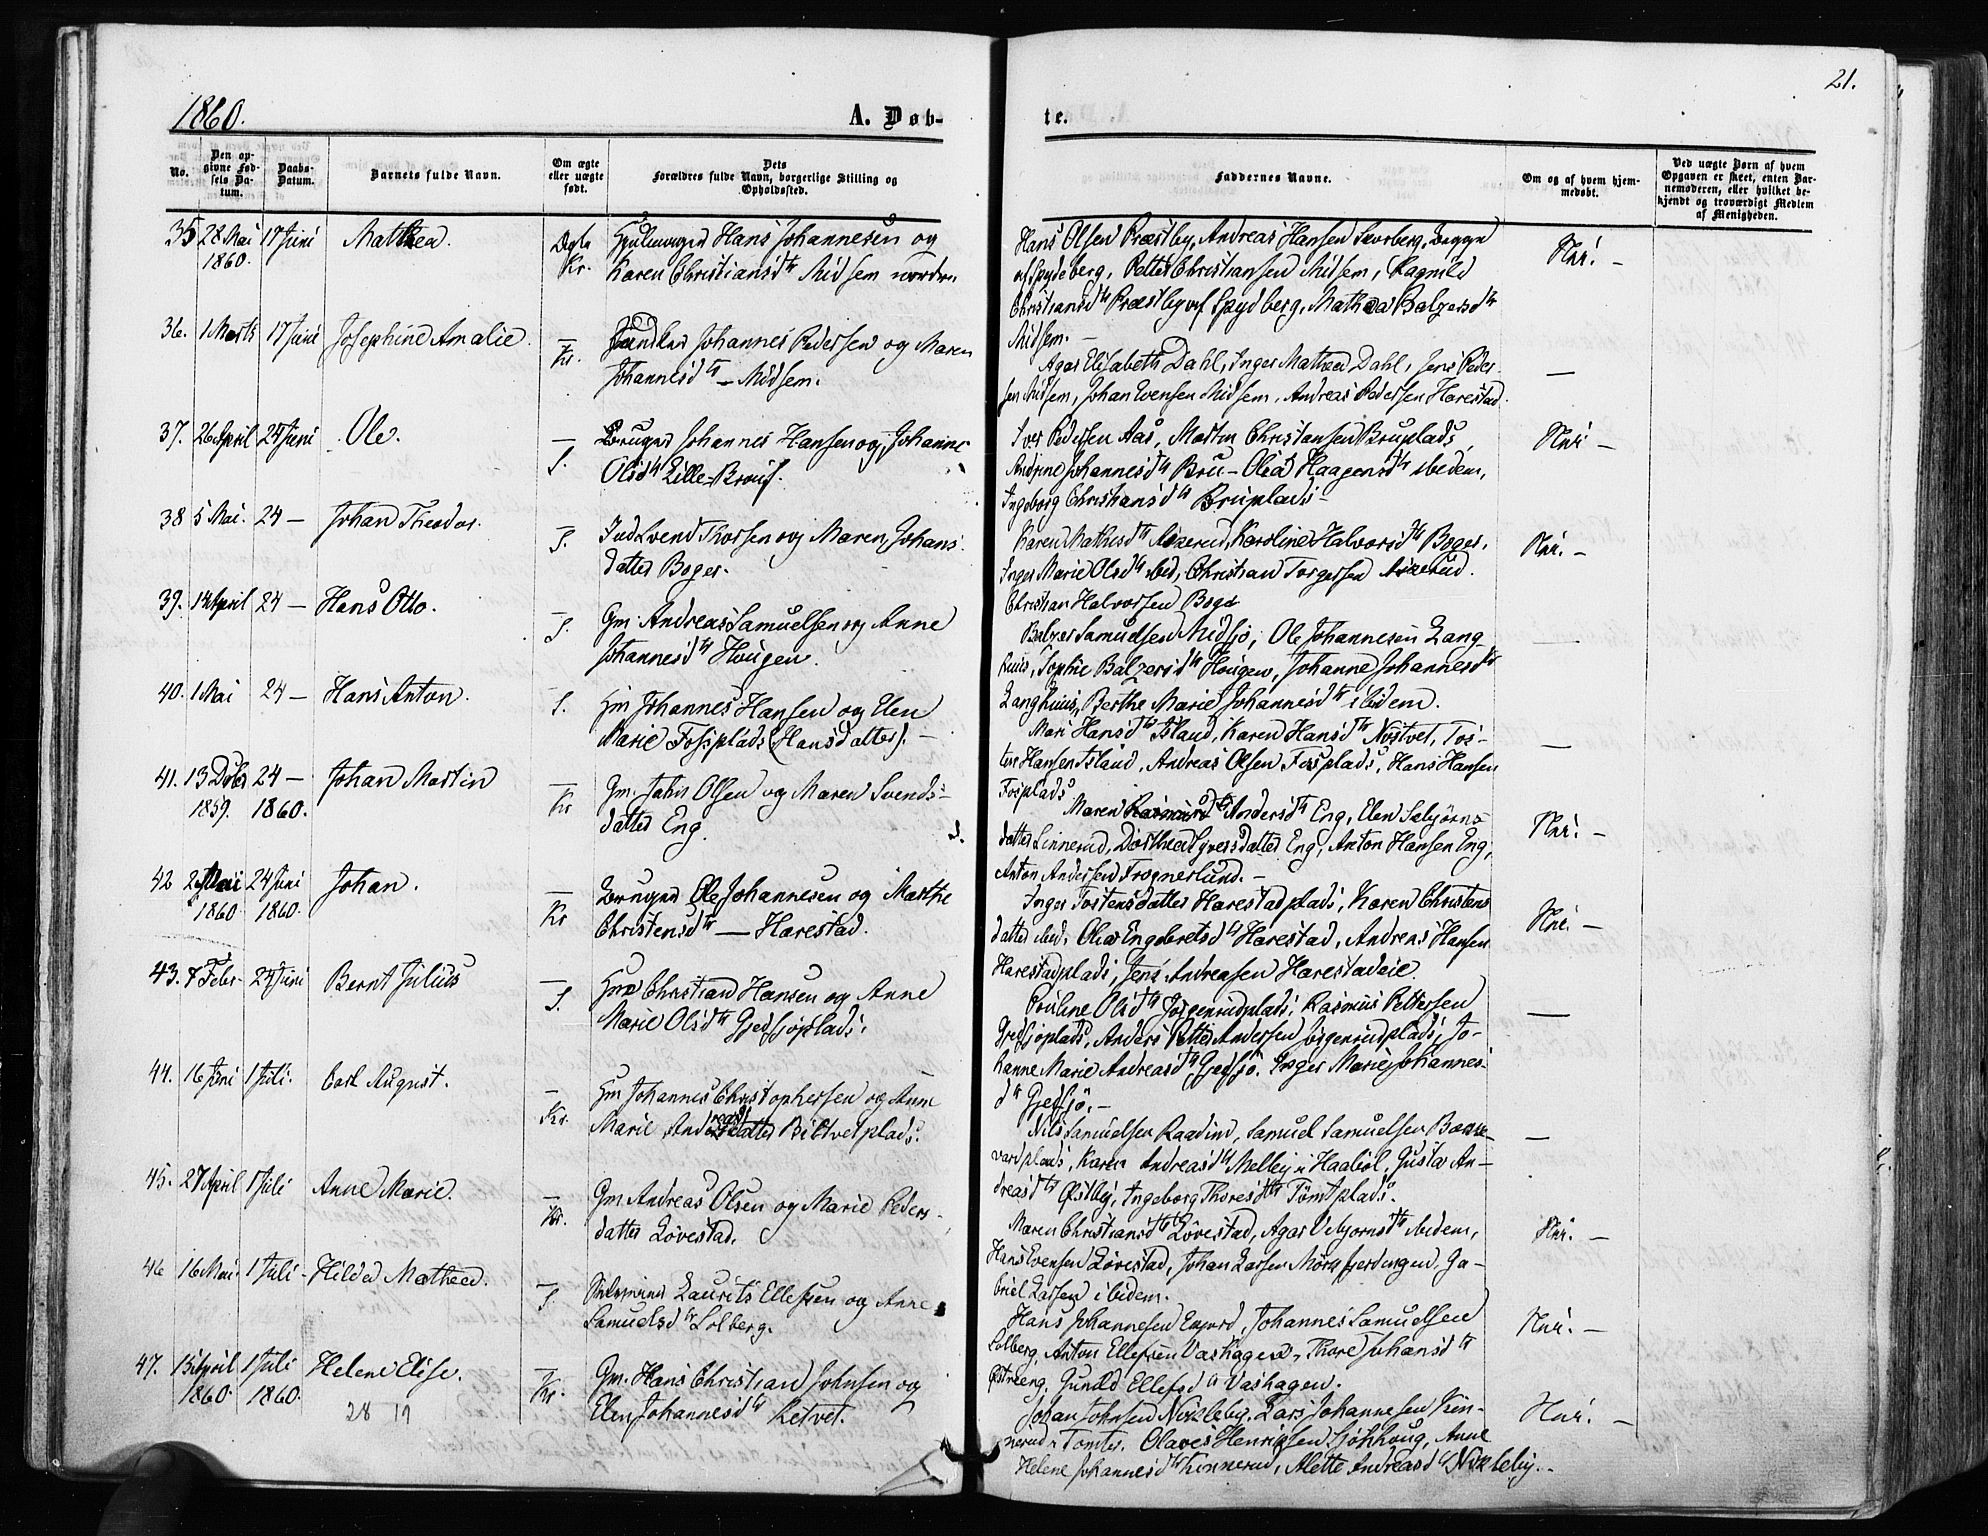 21.
1860.
A. Døb-
te.
No.
Den op-
givne Fød-
sels Da-
tum.
Daabs-
Datum.
Barnets fulde Navn.
Om ægte
eller uægte
født.
Dets
Forældres fulde Navn, borgerlige Stilling og
Opholdssted.
Faddernes Navne.
Om og af hvem hjem-
medøbt.
Ved uægte Børn af hvem
Opgaven er skeet, enten Bar-
nemoderen, eller hvilket be-
kjendt og troværdigt Medlem
af Menigheden.
35 28 Mai 17 Juni Matthea.
1860.
Ægte
Kr.
Hans Johannesen og
Karen Christiansdtr Midsem nordre
Hans Olsen Præstby, Andreas Hansen
af Spydeberg, Petter Christiansen Midsem, Ragnild
Christiansdtr Præstby af Spydberg, Mathea Balzersdtr
Midsem. –
36. 1 Marts 17 Juni Josephine Amalie.
—
Kr.
Johannes Pedersen og Maren
Johannesdtr – Midsem.
Agar Elisabeth Dahl, Inger Mathea Dahl, Jens Peder-
sen Midsem, Johan Evensen Midsem, Andreas Pedersen Harestad.
—
37. 26 April 24 Juni Ole.
—
S.
Bruger Johannes Hansen og Johanne
Olsdtr Lille-
Iver Pedersen Aas, Martin Christansen Bruplads,
Andrine Johannesdtr Bru – Olea Haagensdtr ibidem,
Ingeborg Christiansdtr Bruplads –
38 5 Mai. 24 — Johan Theodor.
—
S.
Ind. Svend Thorsen og Maren Johans-
datter Boger.
Karen Mathisdtr Karoline Halvorsdtr Boger,
Inger Marie Olsdtr ibid, Christian Torgersen
Christian Halvorsen Boger
39. 14 April 24 — Hans Otto.
—
S.
Gm. Andreas Samuelsen og Anne
Johannesdtr Hougen.
Balzer Samuelsen Midsjø, Ole Johannesen Lang-
huus, Sophie Balzersdtr Hougen, Johanne Johannesdtr
Langhuus, Berthe Marie Johannesdtr ibidem.
—
40. 1 Mai 24 — Hans Anton.
—
S.
Hm Johannes Hansen og Elen
Marie Fossplads (Hansdatter). –
Mari Hansdtr Island, Karen Hansdtr Nøstvet, Tos-
ten Hansen Island, Andreas Olsen Fosplads, Hans Hansen
Fosplads
—
41. 13 Dcbr 24 — Johan Martin
1859. 1860.
—
Kr
Gm. Johis Olsen og Maren Svends-
datter Eng.
Maren Andersdtr Eng, Elen
datter Linnerud, Dorthea datter Eng, Anton Hansen Eng,
Anton Andersen Frognerlund. –
42 2 Mai 24 Juni Johan.
1860 1860.
—
Kr
Bruger Ole Johannesen og Marthe
Christensdtr — Harestad.
Inger Tostensdatter Harestadplads, Karen Christens
datter ibid, Olea Engebretsdtr Harestad, Andreas Hansen
Harestadplads, Jens Andreasen Harestadeie.
43. 8 Febr 24 Juni Bernt Julius
—
S.
Hm Christian Hansen og Anne
Marie Olsdtr Gjedsjøplads.
Pouline Olsdtr Jørgenrudplads, Rasmus Pettersen
Gjedsjøplads, Anders Petter Andersen Jørgenrudplads, Jo-
hanne Marie Andreasdtr Gjedsjø. Inger Marie Johannes-
dtr Gjedsjø. –
—
44. 16 Juni 1 Juli. Carl August.
—
Kr.
Hm Johannes Christophersen og Anne
Marie Andreasdatter Biltvetplads.
Nils Samuelsen Raadim, Samuel Samuelsen
vardplads, Karen Andreasdtr Melby i Haabøl, Gusta An-
dreasdtr Østby, Ingeborg Thoresdtr Tomtplads.
—
45. 27 April 1 Juli Anne Marie.
—
Kr.
Gm Andreas Olsen og Marie Peders-
datter Løvestad.
Maren Christiansdtr Løvestad, Agar Vebjørnsdtr ibidem,
Hans Evensen Løvestad, Johan Larsen Mørkfjerdingen, Ga-
briel Larsen ibidem.
46 16 Mai 1 Juli - Hilda Mathea.
—
S.
Laurits Ellefsen og Anne
Samuelsdtr Solberg.
Hans Johannesen Johannes Samuelsen
Solberg, Anton Ellefsen Vashagen, Thore Johansdtr
Gunild Ellefsdtr Vashagen.
47. 15 April 1 Juli Helene Elise.
1860. 1860.
28 19
—
Kr.
Gm. Hans Christian Johnsen og
Elen Johannesdtr Ketvet.
Johan Johnsen Nikleby, Lars Johannesen Kin-
nerud i Tomter. Olaves Henriksen Sjøhhoug, Anne
Helene Johannesdtr Kinnerud, Alette Andreasdtr Nikleby. –